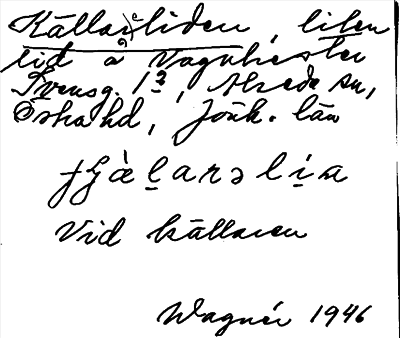 Källarliden, liten
lid å vagnhester
Svensg. 1², Alseda sn,
Östra hd, Jönk. län
Vid källaren
Wagnér 1946